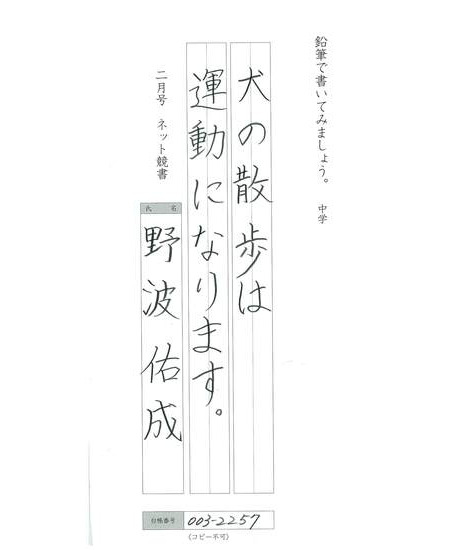 鉛筆で書いてみましょう。 中学
犬の散歩は
運動になります。
二月号 ネット競書
氏名
野波佑成
台帳番号 003-2257
(コピー不可)